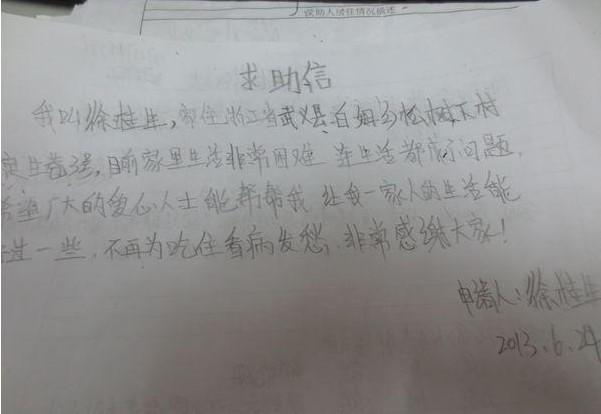 受助人居住情况描述
求助信
我叫徐桂生，家住浙江省武义县白姆乡松树下村
目前家里生活非常困难 连生活都成了问题，
希望广大的爱心人士能帮帮我 让我一家人的生活能
过一些，不再为吃住看病发愁，非常感谢大家！
申请人：徐桂生
2013.6.24